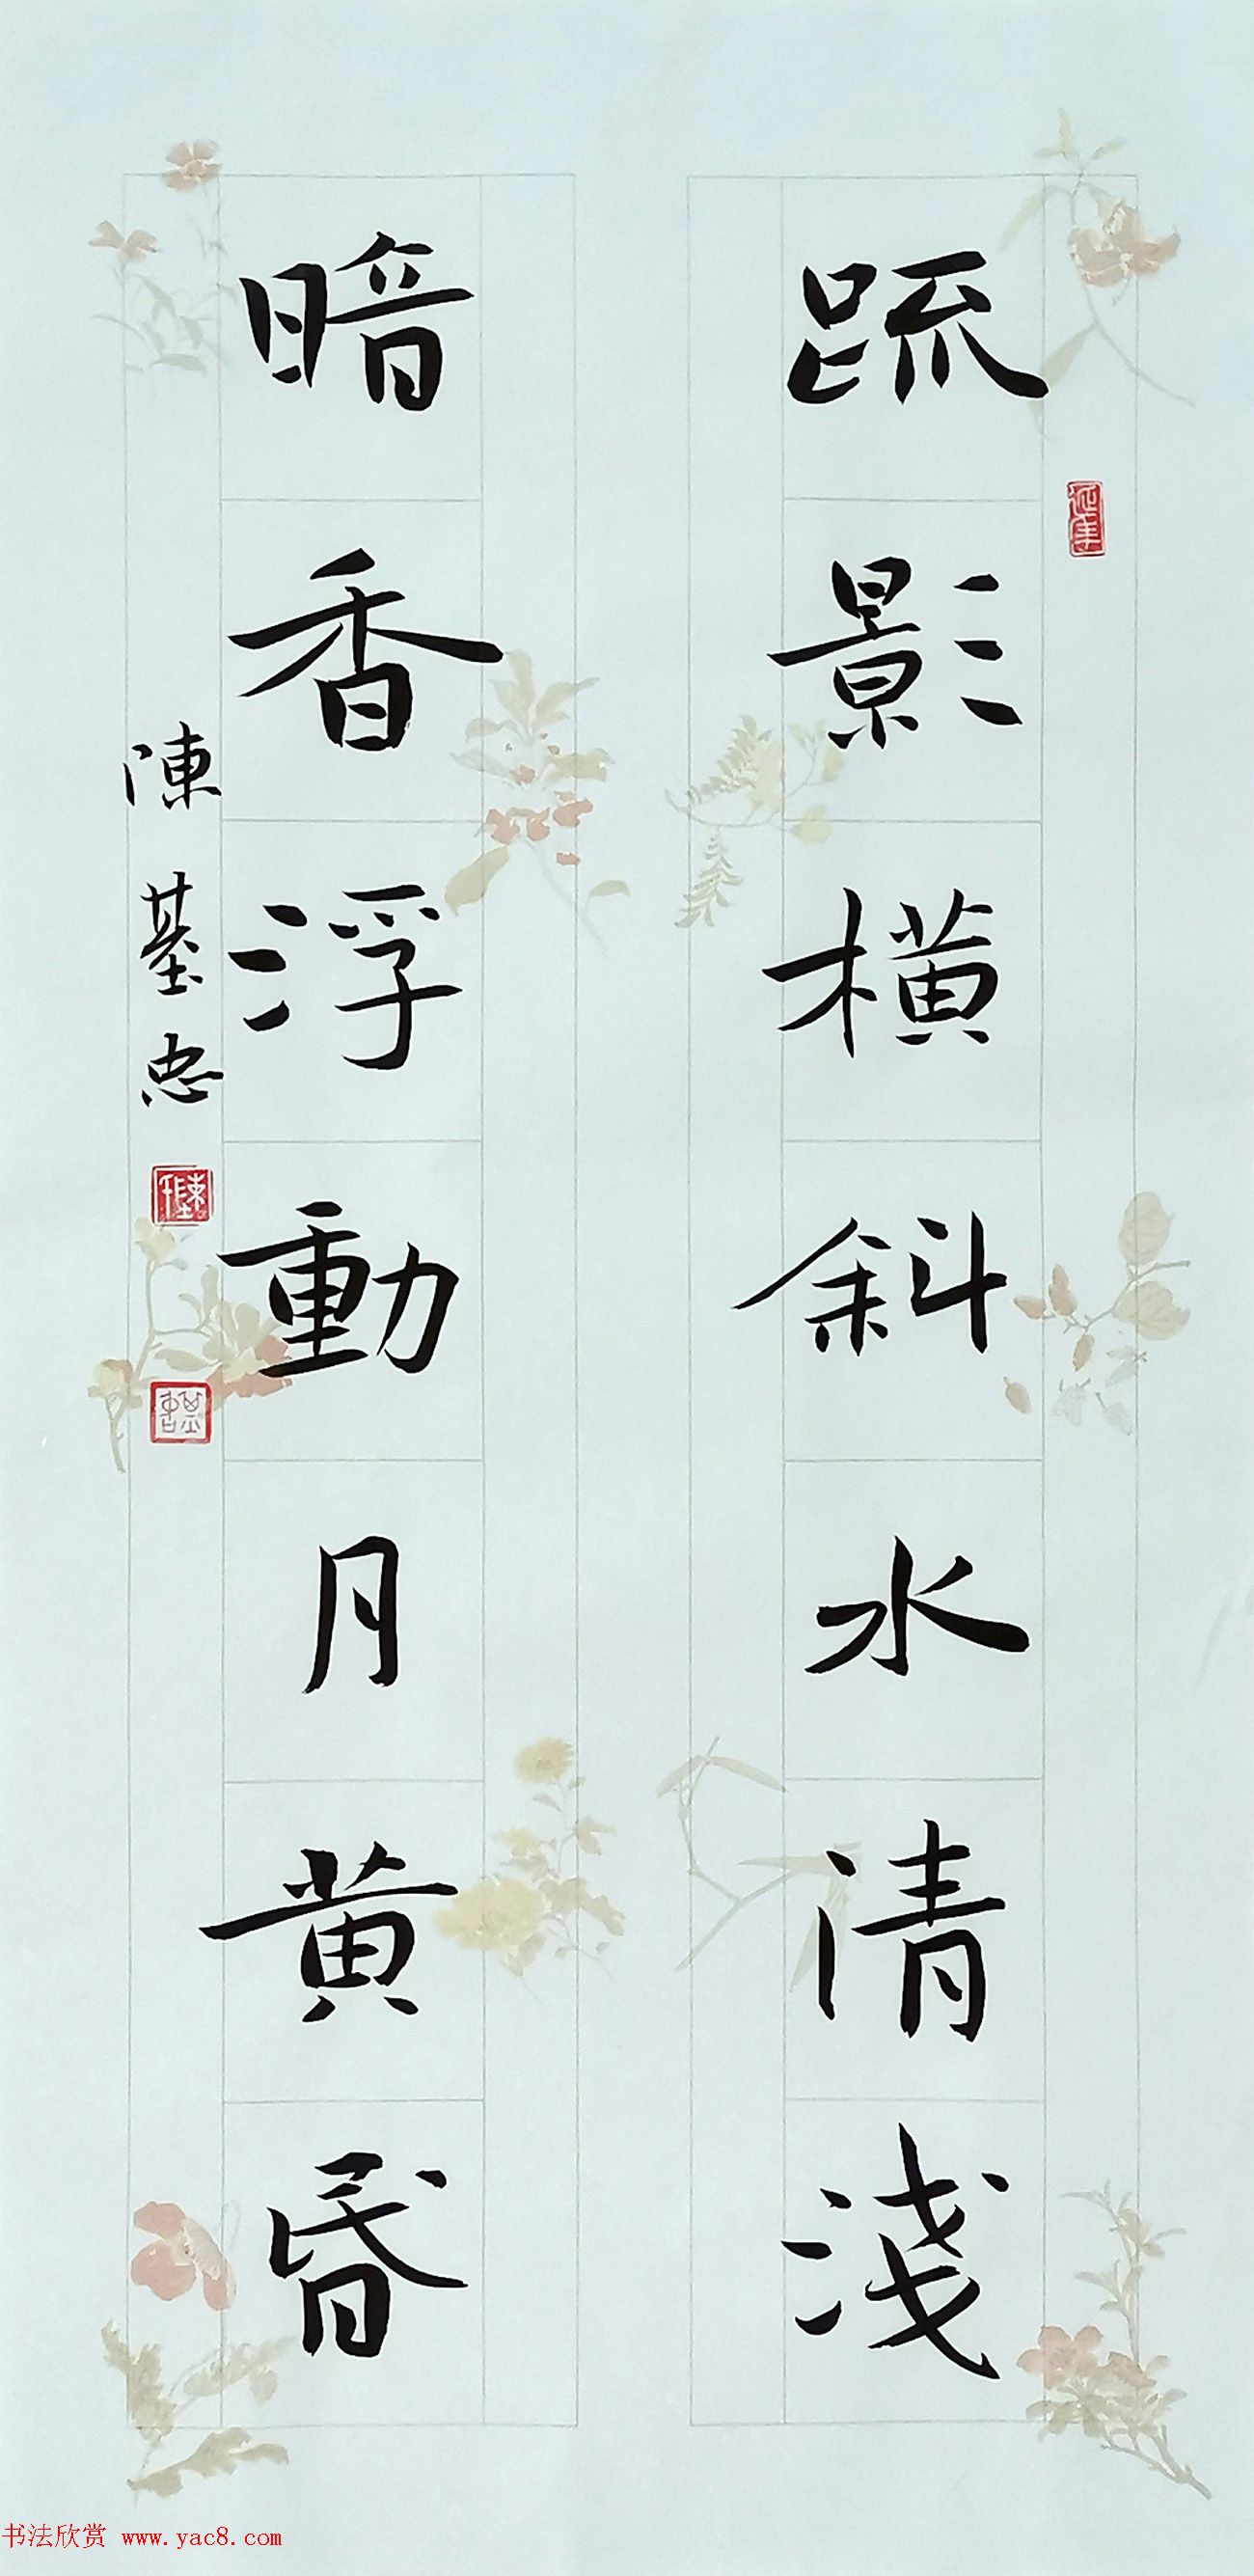 疏影橫斜水清淺
暗香浮動月黃昏
陳基忠
书法欣赏 www.yac8.com